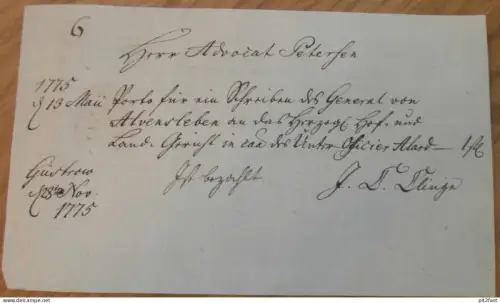 6
Herr Advocat Petersen
1775
d 13 Maii Porto für ein Schreiben des General von
Alvensleben an das Herzogl Hof- und
Land-Gericht in causa des Unter Officier Alard —
Güstrow Ist bezahlt
d 28ten Nov. 1775